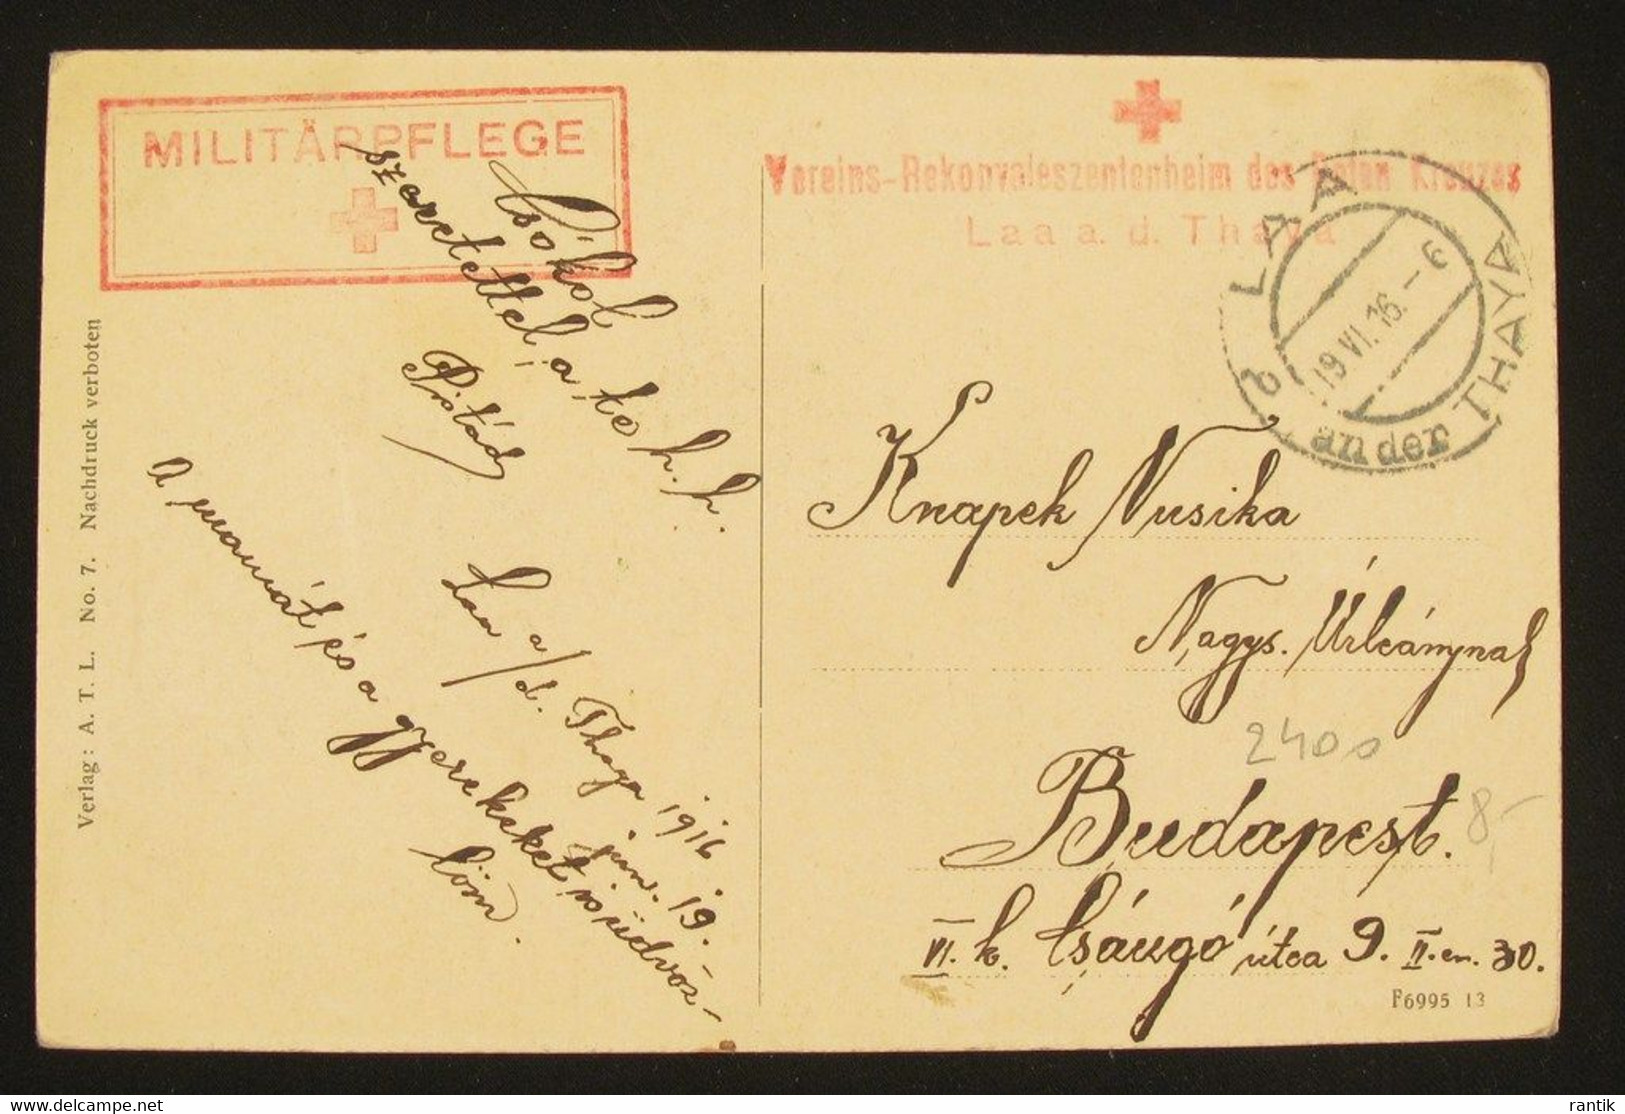 MILITÄRPFLEGE
Vereins-Rekonvaleszentenheim des Roten Kreuzes
Laa a. d. Thaya
LAA
an der THAYA
19 VI. 16. - 6
Csókol
szeretettel, a te h. h.
Pistád
Laa a/d. Thaya 1916
jun. 19.
A mamát és a gyerekeket is üdvöz-
löm.
Knapek Nusika
Nagys. Úrleánynak
Budapest.
VI. k. Csángó útca 9. II. em. 30.
2400
8,-
Verlag: A. T. L. No. 7. Nachdruck verboten
F6995 13
hippostcard.com
rantik